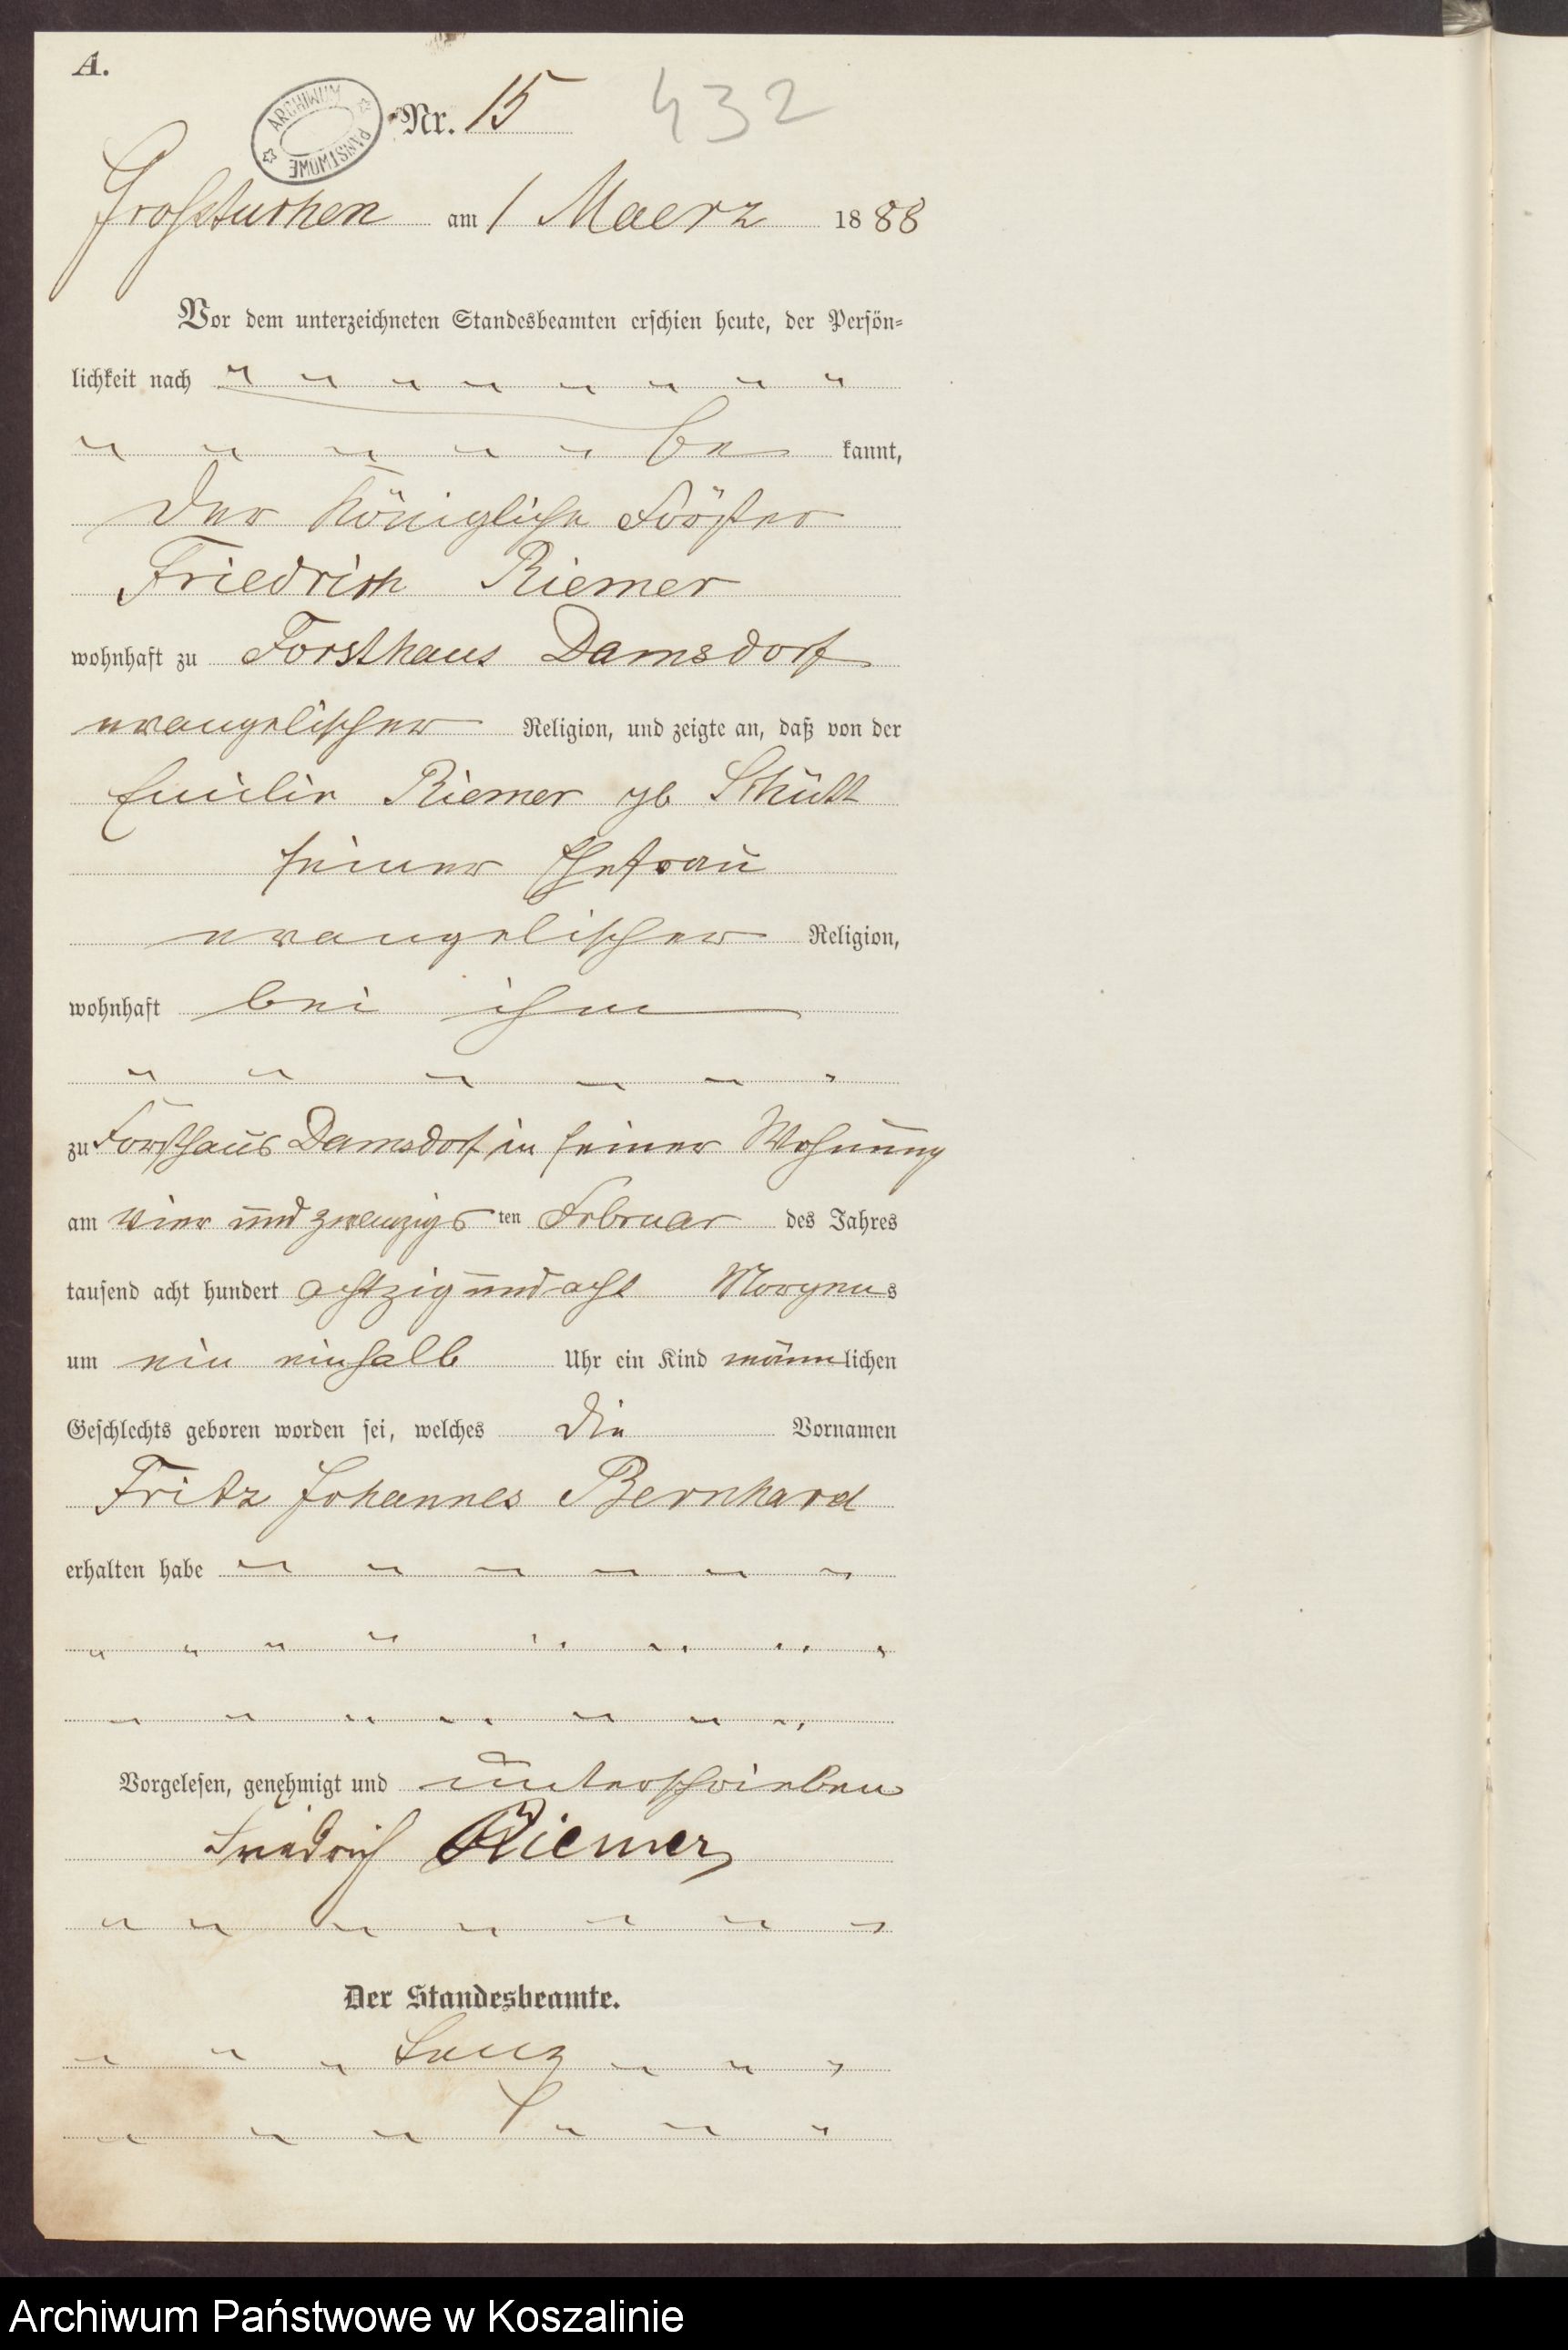 A.
ARCHIWUM PAŃSTWOWE
Nr. 15 432
Großtuchen am 1 Maerz 1888
Vor dem unterzeichneten Standesbeamten erschien heute, der Persön=
lichkeit nach
be kannt,
der Königliche Förster
Friedrich Riemer
wohnhaft zu Forsthaus Damsdorf
evangelischer Religion, und zeigte an, daß von der
Emilie Riemer gb Schütt
seiner Ehefrau
evangelischer Religion,
wohnhaft bei ihm
zu Forsthaus Damsdorf in seiner Wohnung
am vier und zwanzigs ten Februar des Jahres
tausend acht hundert achtzig und acht Morgens
um ein einhalb Uhr ein Kind männlichen
Geschlechts geboren worden sei, welches die Vornamen
Fritz Johannes Bernhard
erhalten habe
Vorgelesen, genehmigt und unterschrieben
Friedrich Riemer
Der Standesbeamte.
Archiwum Państwowe w Koszalinie